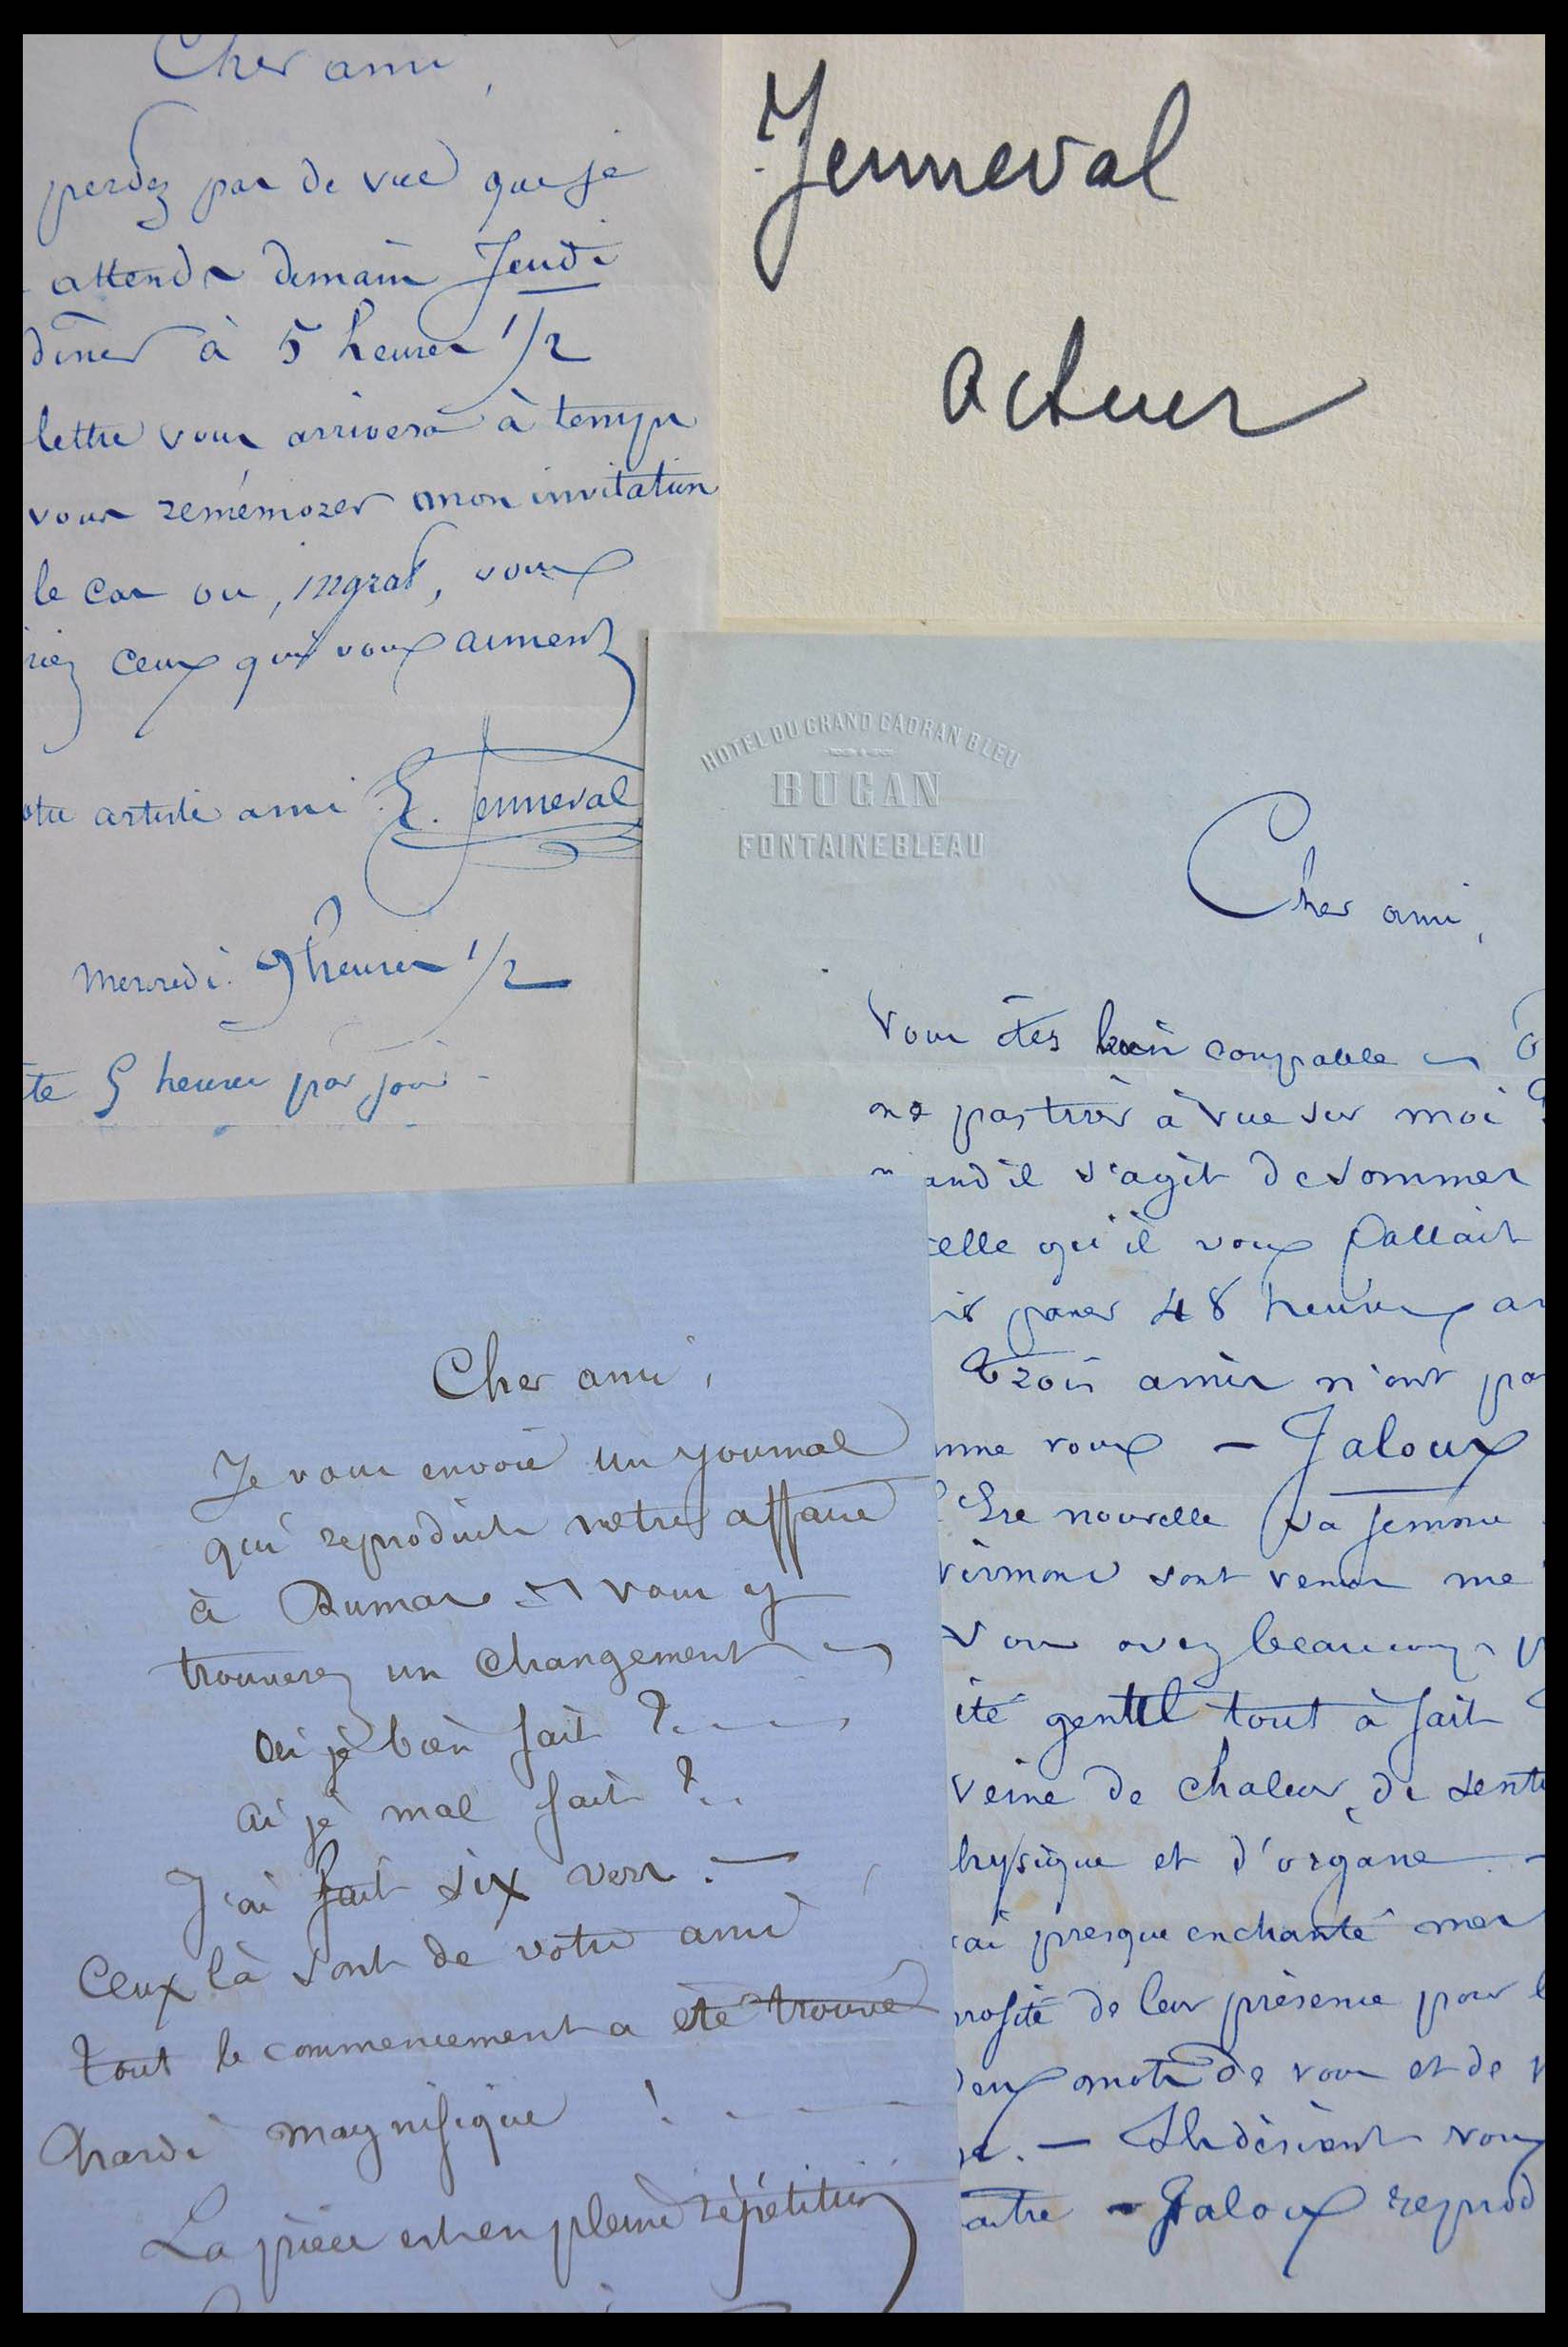 Cher ami,
perdez pas de vue que je
attends demain Jeudi
diner à 5 heures 1/2
lettre vous arrivera à temps
vous remémorer mon invitation
le cas ou, ingrat, vous
riez ceux qui vous aiment
otre artiste ami E. Jenneval
Mercredi. 9 heures 1/2
te 5 heures par jour
Jenneval
acteur
HOTEL DU GRAND CADRAN BLEU
BUGAN
FONTAINEBLEAU
Cher ami,
Vous êtes bien coupable
ne pas tirer à vue sur moi
and il s'agit de sommes
celle qu'il vous fallait
passer 48 heures
trois amis n'ont pa
mme vous — Jaloux
Ere nouvelle sa femme
sont venus me
Vous avez beaucoup
été gentil tout à fait
veine de chaleur, de senti
hysique et d'organe —
ai presque enchanté mes
rofité de leur présence pour
deux mots de vous et de
— Ils désirent vous
aitre — Jaloux reprod
Cher ami,
Je vous envoie un journal
qui reproduit notre affaire
à Dumas et vous y
trouverez un changement
ai je bien fait ?....
ai je mal fait ?..
J'ai fait six vers. —
Ceux là sont de votre ami
tout le commencement a été trouvé
hardi magnifique ! . . .
La pièce est en pleine répétition